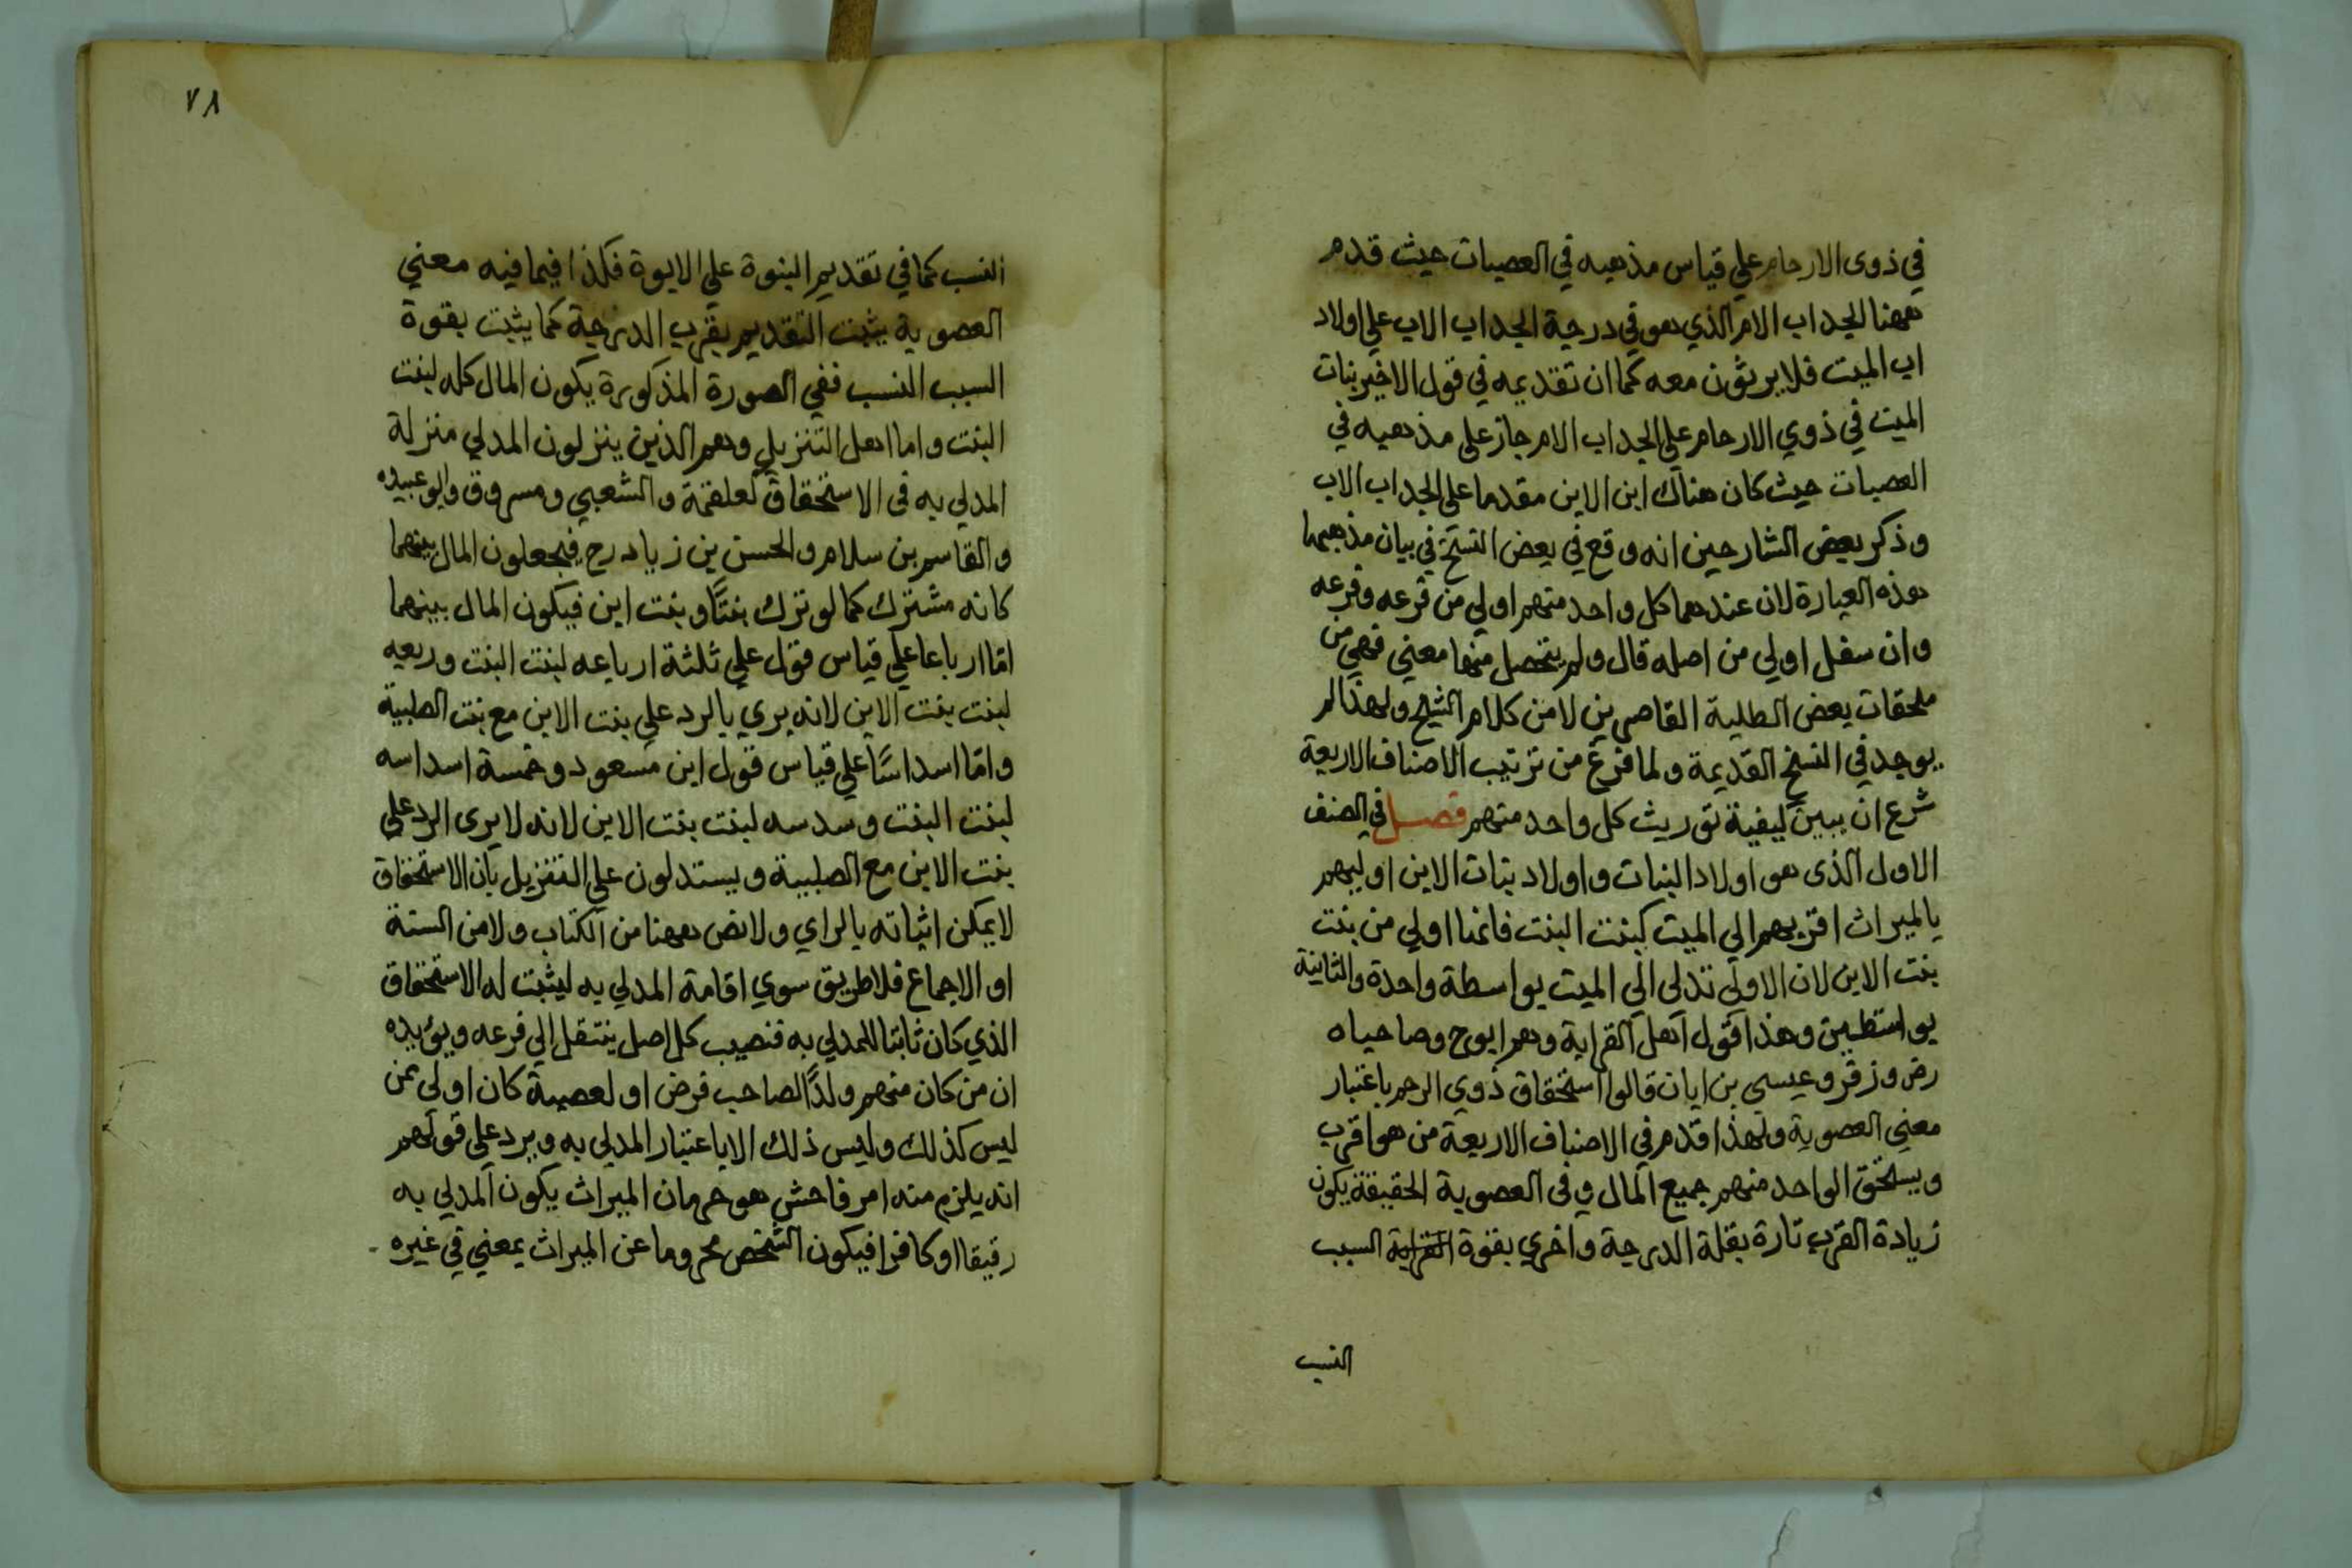 في ذوى الارحام علي قياس مذهبه في العصبات حيث قدم
ههنا الجد اب الام الذي هو في درجة الجد اب الاب علي اولاد
اب الميت فلا يرثون معه كما ان تقديمه في قول الاخير بنات
الميت في ذوي الارحام علي الجد اب الام جاز على مذهبه في
العصبات حيث كان هناك ابن الابن مقدما على الجد اب الاب
وذكر بعض الشارحين انه وقع في بعض النسخ في بيان مذهبهما
هذه العبارة لان عندهما كل واحد منهم اولي من فرعه وفرعه
وان سفل اولي من اصله قال ولم يتحصل منها معني فهي من
ملحقات بعض الطلبة القاصرين لا من كلام الشيخ ولهذا لم
يوجد في النسخ القديمة ولما فرغ من ترتيب الاصناف الاربعة
شرع ان يبين كيفية توريث كل واحد منهم فصل في الصنف
الاول الذى هو اولاد البنات واولاد بنات الابن اوليهم
بالميراث اقربهم الي الميت كبنت البنت فانها اولي من بنت
بنت الابن لان الاولي تدلى الي الميت بواسطة واحدة والثانية
بواسطتين وهذا قول اهل القرابة وهم ابوح وصاحباه
رض وزفر وعيسى بن ابان قالوا استحقاق ذوي الرحم باعتبار
معني العصوبة ولهذا قدم في الاصناف الاربعة من هو اقرب
ويستحق الواحد منهم جميع المال وفى العصوبة الحقيقة يكون
زيادة القرب تارة بقلة الدرجة واخري بقوة القرابة السبب
النسب
٧٨
النسب كما في تقديم البنوة علي الابوة فكذا فيما فيه معني
العصوبة يثبت التقديم بقرب الدرجة كما يثبت بقوة
السبب النسب ففي الصورة المذكورة يكون المال كله لبنت
البنت واما اهل التنزيل وهم الذين ينزلون المدلي منزلة
المدلي به فى الاستحقاق كعلقمة والشعبي ومسروق وابو عبيده
والقاسم بن سلام والحسن بن زياد رح فيجعلون المال بينهما
كانه مشترك كما لو ترك بنتًا وبنت ابن فيكون المال بينهما
امّا ارباعا علي قياس قول علي ثلثة ارباعه لبنت البنت وربعه
لبنت بنت الابن لانه يري بالرد علي بنت الابن مع بنت الصلبية
وامّا اسداسًا علي قياس قول ابن مسعود وخمسة اسداسه
لبنت البنت وسدسه لبنت بنت الابن لانه لا يرى الرد علي
بنت الابن مع الصلبية ويستدلون علي التنزيل بان الاستحقاق
لا يمكن اثباته بالراي ولا نص ههنا من الكتاب ولا من السنة
او الاجماع فلا طريق سوي اقامة المدلي به ليثبت له الاستحقاق
الذي كان ثابتا للمدلي به فنصيب كل اصل ينتقل الي فرعه ويؤيده
ان من كان منهم ولدًا لصاحب فرض او لعصبة كان اولي ممن
ليس كذلك وليس ذلك الا باعتبار المدلي به ويرد علي قولهم
انه يلزم منه امر فاحش هو حرمان الميراث بكون المدلي به
رقيقا او كافرا فيكون الشخص محروما عن الميراث بمعني في غيره